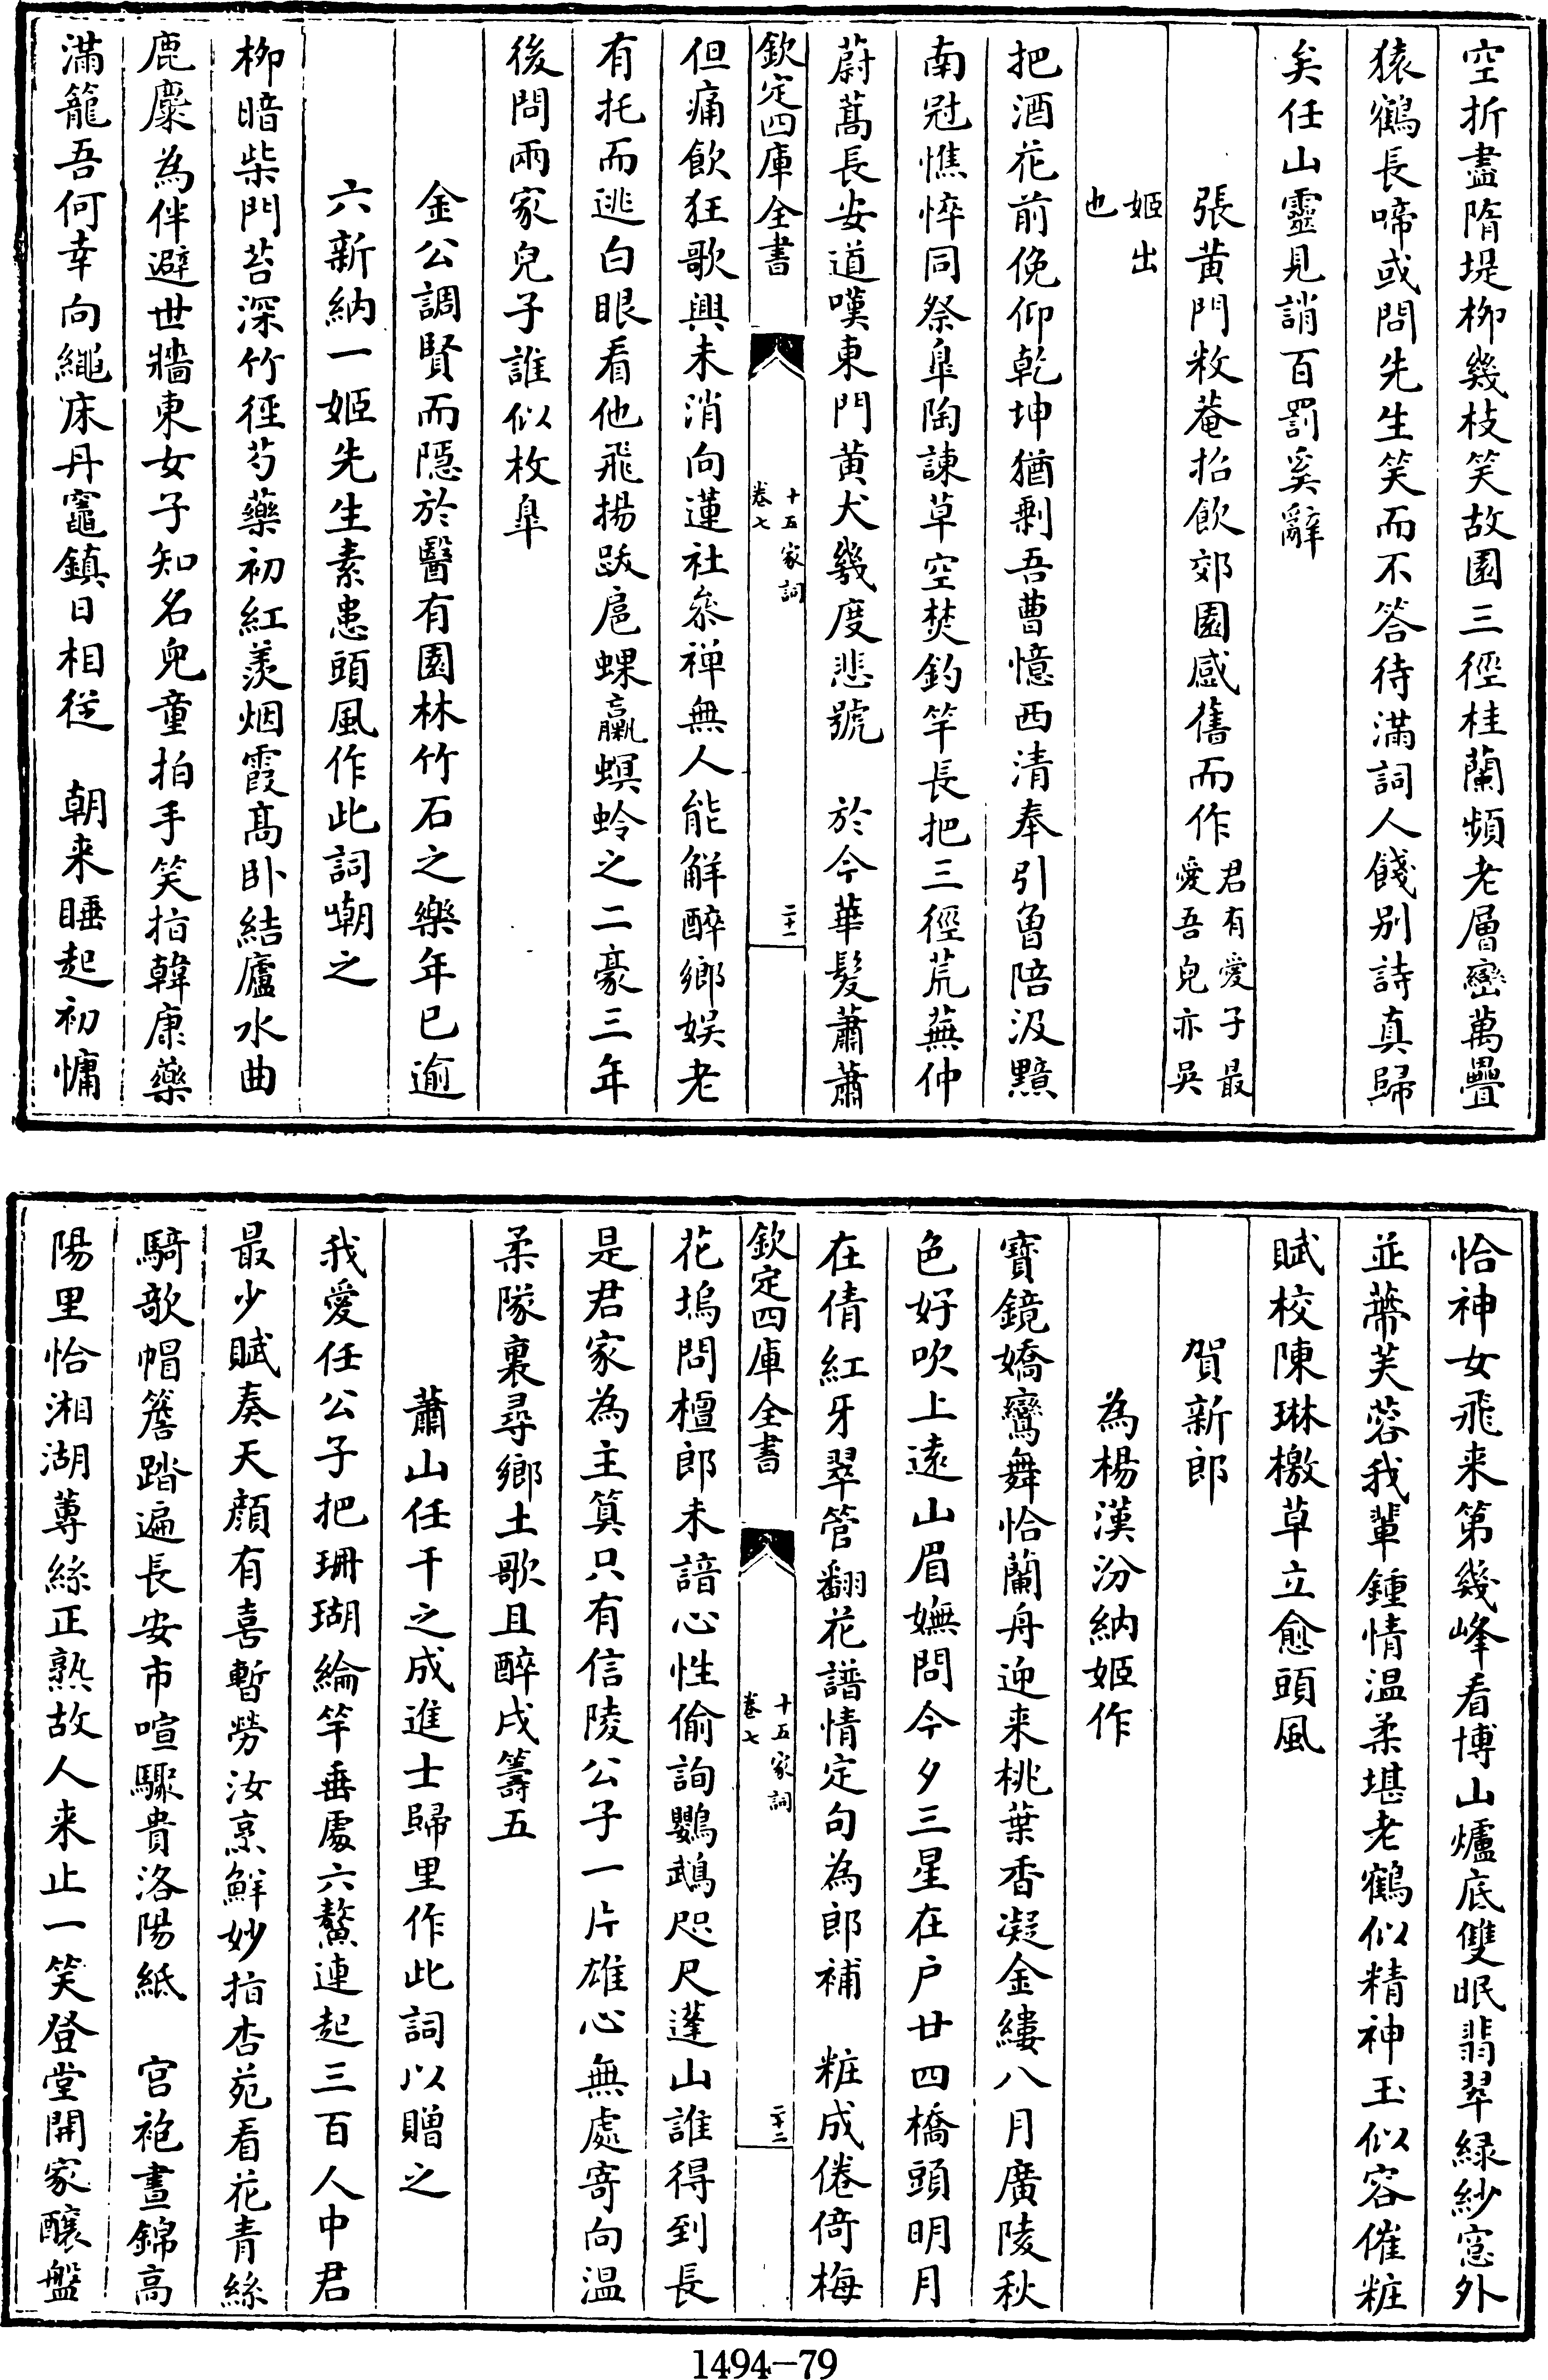 空折盡隋堤柳幾枝笑故園三徑桂蘭頻老層巒萬疊
猿鶴長啼或問先生笑而不答待滿詞人餞别詩真歸
矣任山靈見誚百罰奚辭
張黄門敉菴招飲郊園感舊而作君有愛子最
愛吾兒亦吳
姬出
也
把酒花前俛仰乾坤猶剩吾曹憶西清奉引魯陪汲黯
南冠憔悴同祭臯陶諫草空焚釣竿長把三徑荒蕪仲
蔚蒿長安道嘆東門黄犬幾度悲號　於今華髮蕭蕭
欽定四庫全書
十五家詞
卷七
二十一
但痛飲狂歌興未消向蓮社叅禅無人能解醉鄉娱老
有托而逃白眼看他飛揚跋扈蜾蠃螟蛉之二豪三年
後問兩家兒子誰似枚臯
金公調賢而隱於醫有園林竹石之樂年已逾
六新納一姬先生素患頭風作此詞嘲之
柳暗柴門苔深竹徑芍藥初紅羨烟霞髙卧結廬水曲
鹿麋為伴避世牆東女子知名兒童拍手笑指韓康藥
滿籠吾何幸向繩床丹竈鎮日相從　朝来睡起初慵
恰神女飛来第幾峰看博山爐底雙眠翡翠緑紗窓外
並蔕芙蓉我輩鍾情温柔堪老鶴似精神玉似容催粧
賦校陳琳檄草立愈頭風
賀新郎
為楊漢汾納姬作
寳鏡嬌鸞舞恰蘭舟迎来桃葉香凝金縷八月廣陵秋
色好吹上遠山眉嫵問今夕三星在户廿四橋頭明月
在倩紅牙翠管翻花譜情定句為郎補　粧成倦倚梅
欽定四庫全書
十五家詞
卷七
二十二
花塢問檀郎未諳心性偷詢鸚鵡咫尺蓬山誰得到長
是君家為主算只有信陵公子一片雄心無處寄向温
柔隊裏尋鄉土歌且醉戍籌五
蕭山任千之成進士歸里作此詞以贈之
我愛任公子把珊瑚綸竿垂處六鰲連起三百人中君
最少賦奏天顔有喜暫勞汝烹鮮妙指杏苑看花青絲
騎欹帽簷踏遍長安市喧驟貴洛陽紙　宫袍晝錦高
陽里恰湘湖蓴絲正熟故人来止一笑登堂開家釀盤
1494-79